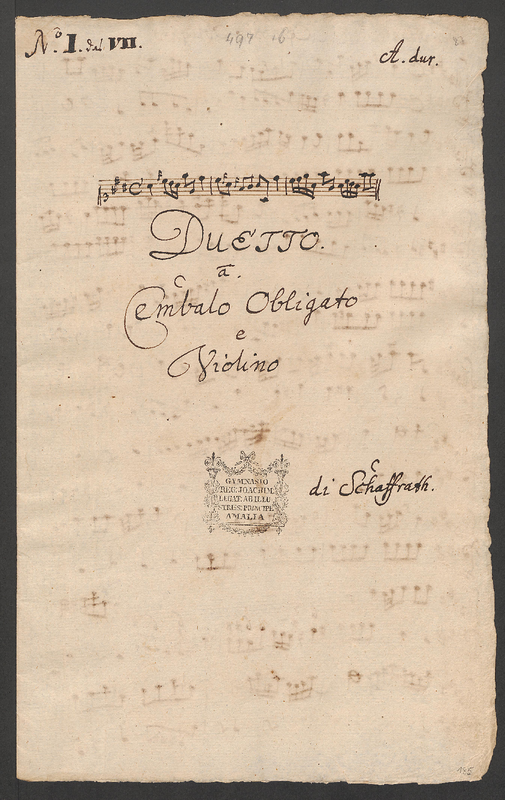 No. I. del VII.
A. dur.
DUETTO.
a.
Cembalo Obligato
e
Violino
GYMNASIO
REG. JOACHIM.
LEGAT. AB ILLU-
STRISS. PRINCIPE
AMALIA
di Schaffrath.